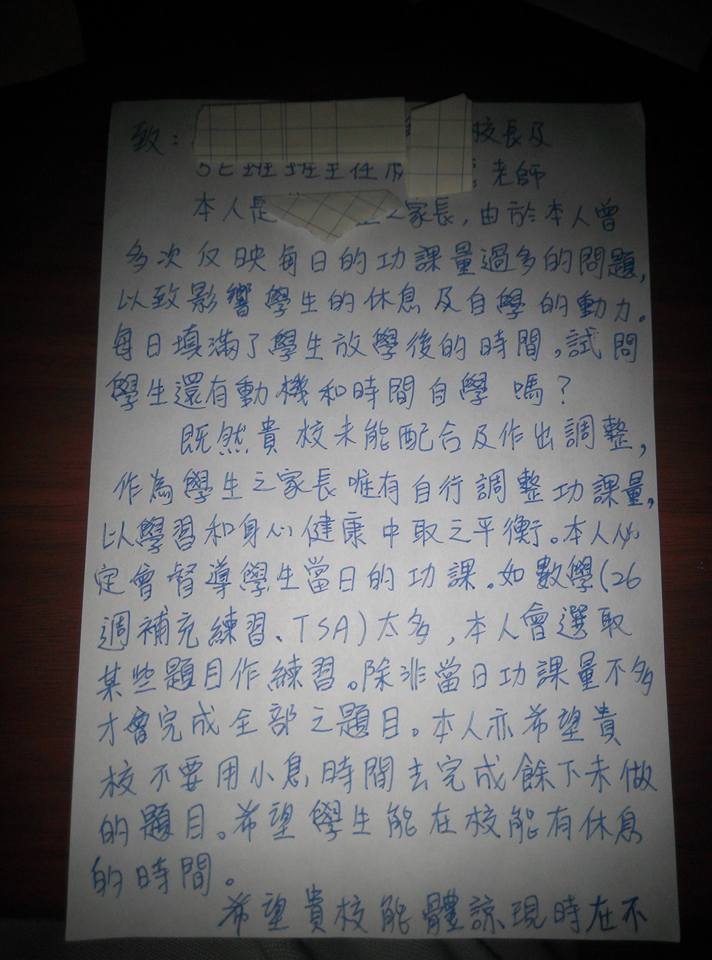 致： 校長及
班班主任 老師
本人是 之家長，由於本人曾
多次反映每日的功課量過多的問題，
以致影響學生的休息及自學的動力。
每日填滿了學生放學後的時間，試問
學生還有動機和時間自學嗎？
既然貴校未能配合及作出調整，
作為學生之家長唯有自行調整功課量，
以學習和身心健康中取之平衡。本人必
定會督導學生當日的功課。如數學(26
週補充練習、TSA)太多，本人會選取
某些題目作練習。除非當日功課量不多
才會完成全部之題目。本人亦希望貴
校不要用小息時間去完成餘下未做
的題目。希望學生能在校能有休息
的時間。
希望貴校能體諒現時在不